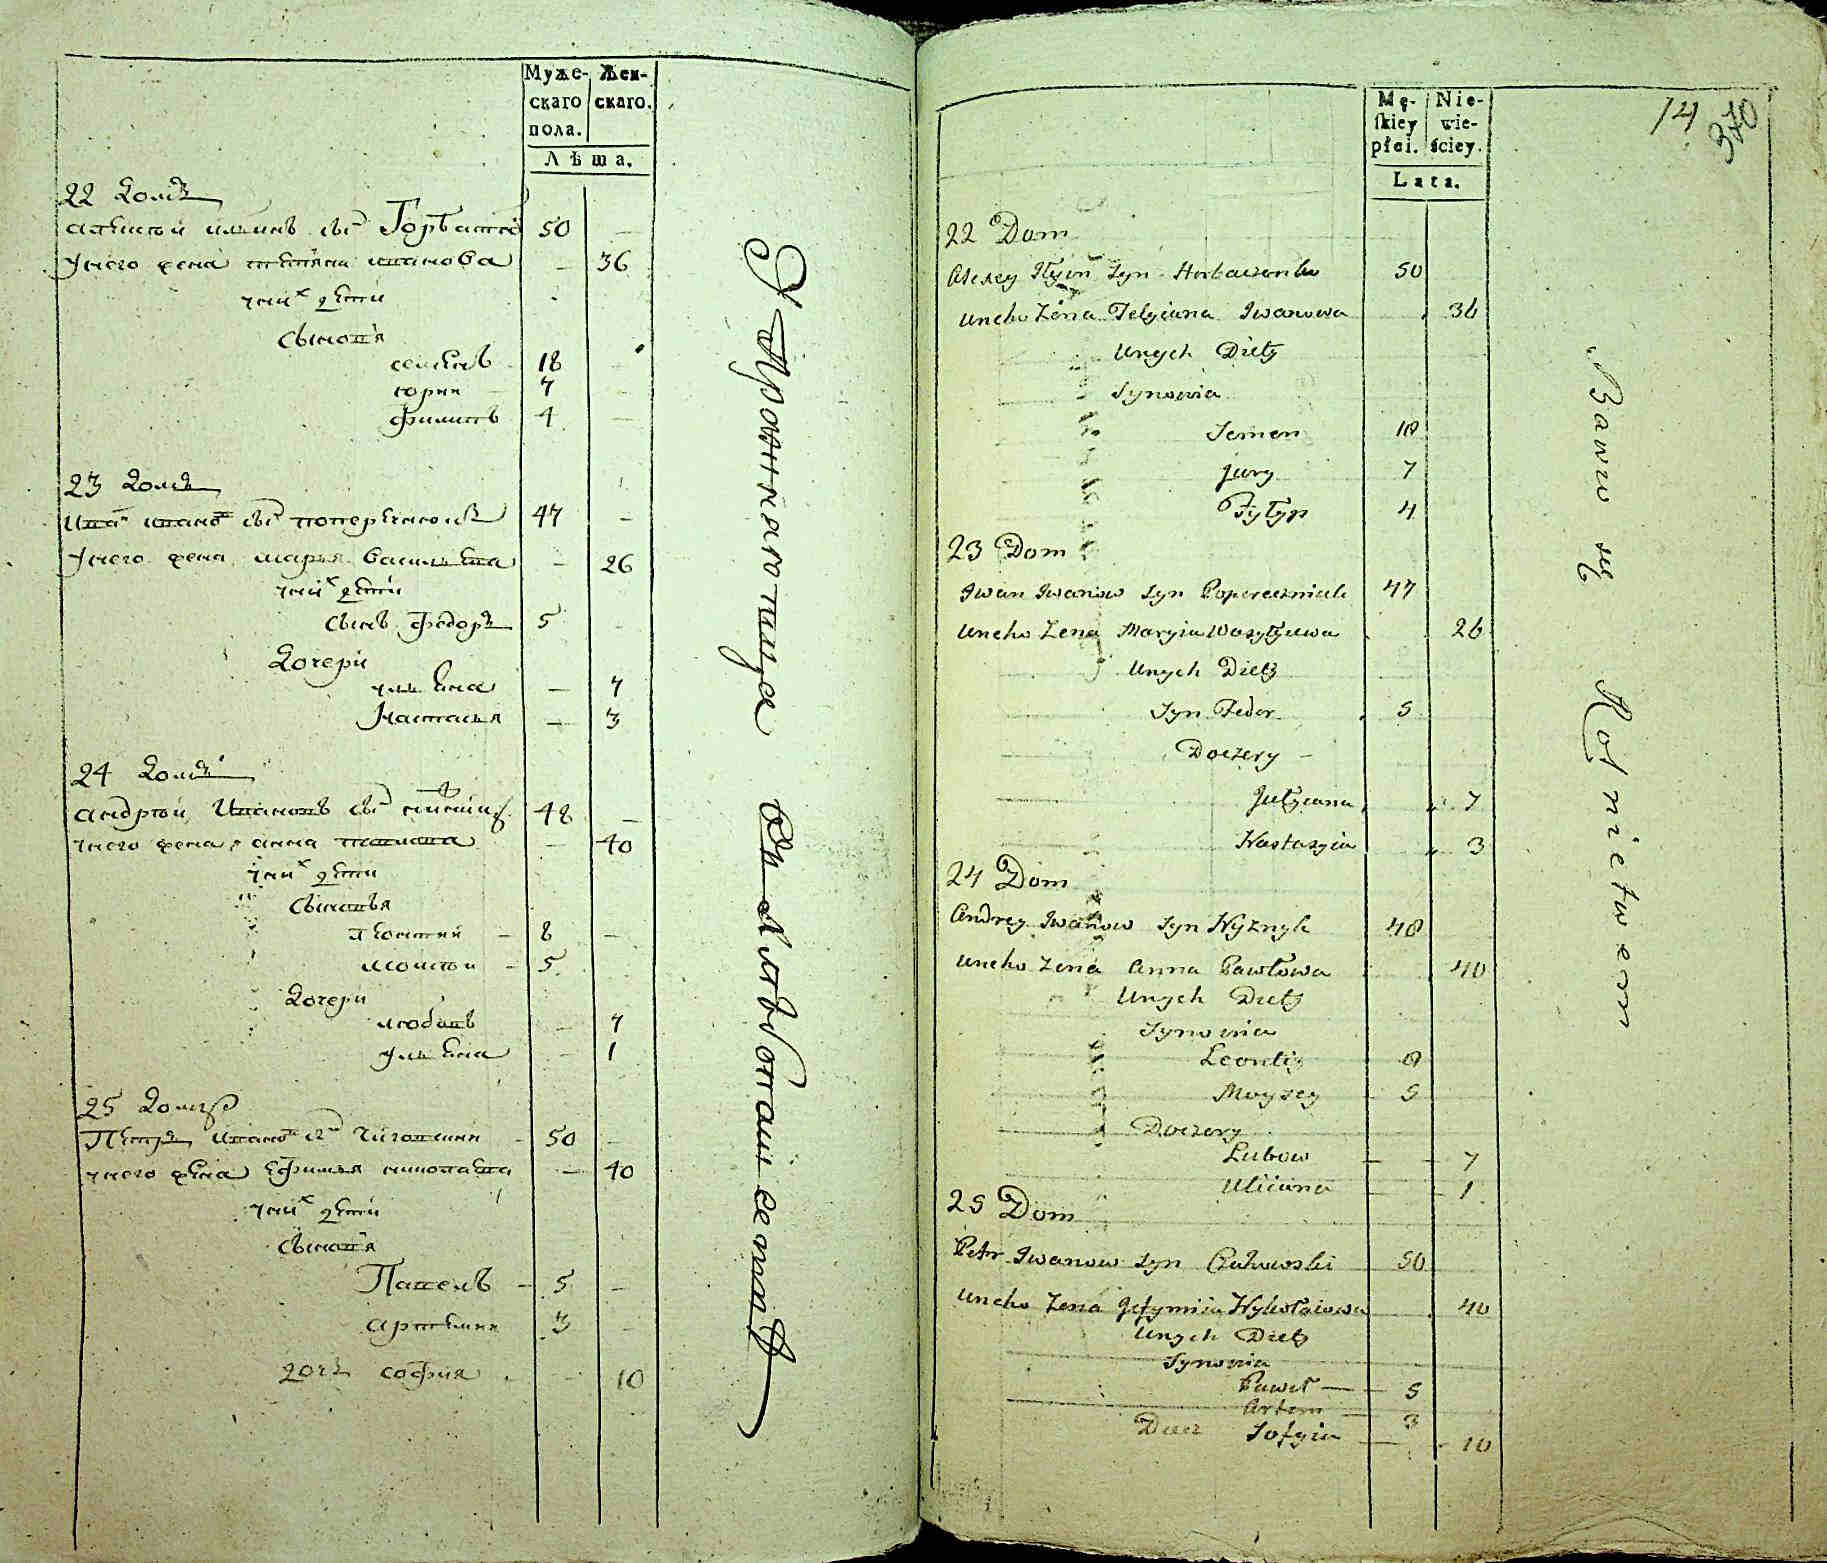 Муже- Жен-
скаго скаго.
пола.
Лѣта.
22 Домъ
Алексѣй Ильинъ сынъ Горбаченко 50
У него жена Тетяна Иванова 36
У них дети
Сыновя
Семенъ 18
Юрии 7
Филипъ 4
23 Домъ
Иванъ Ивановъ сынъ Поперечнюкъ 47
У него жена Марья Васильева 26
У них дети
Сынъ Федоръ 5
Дочери
Ульяна 7
Настасья 3
24 Домъ
Андрей Ивановъ сынъ 48
У него жена Анна Павлова 40
У них дети
Сыновья
Леонтии 8
Моисеи 5
Дочери
Любовь 7
Ульяна 1
25 Домъ
Петръ Ивановъ сынъ 50
У него жена Ефимья Николаева 40
У них дети
Сыновя
Павелъ 5
Артемии 3
Дочь София 10
хлебопашествѣ
14
370
Mę- Nie-
skiey wie-
płci. ściey.
Lata.
22 Dom
Alexey Ilyin Syn Horbaczenko 50
Uneho Zena Tetyiana Iwanowa 36
Unych Diety
Synowia
Semen 18
Jury 7
Fyłyp 4
23 Dom
Iwan Iwanow Syn Popereczniuk 47
Uneho Zena Maryia Wasyłyiewa 26
Unych Diety
Syn Fedor 5
Doczery
Julyiana 7
Nastasyia 3
24 Dom
Andrey Iwanow Syn Nyznyk 48
Uneho Zena Anna Pawłowa 40
Unych Diety
Synowia
Leontiy 8
Moysey 5
Doczery
Lubow 7
Uliiana 1
25 Dom
Petr Iwanow Syn 50
Uneho Zena Jefymiia Nykołaiowa 40
Unych Diety
Synowia
Paweł 5
Artem 3
Docz Sofyia 10
Bawio się Rolnictwem